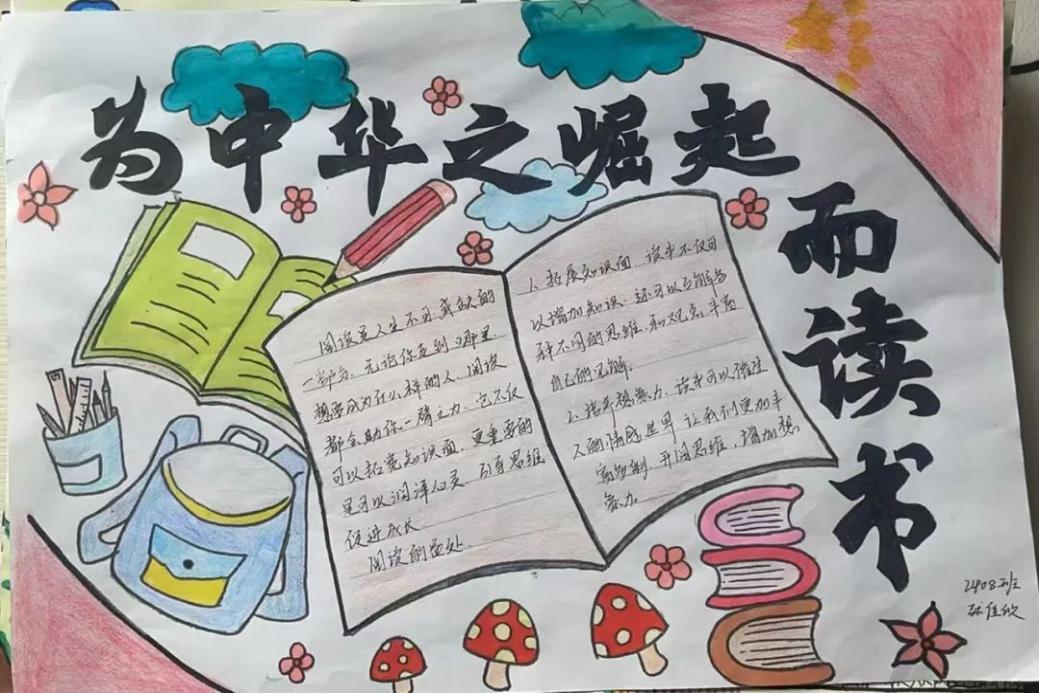 为中华之崛起
而读书
阅读是人生不可或缺的
一部分，无论你走到哪里
想要成为什么样的人，阅读
都会助你一臂之力，它不仅
可以拓宽知识面，更重要的
是可以润泽心灵，引导思维
促进成长
阅读的益处
1、拓展知识面，读书不仅可
以增加知识，还可以了解各
种不同的思维，和观点，丰富
自己的见解。
2、培养想象力，读书可以催生
人的情感世界，让我们更加丰
富多彩，开阔思维，增加想
象力。
2408班